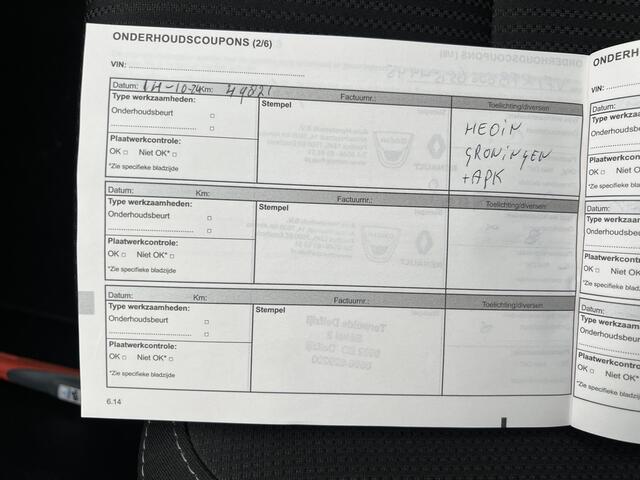 ONDERHOUDSCOUPONS (2/6)
VIN:
Datum: 14-10-24 Km: 49821 Factuurnr.: Toelichting/diversen
Type werkzaamheden:
Onderhoudsbeurt
Stempel
HEDIN
GRONINGEN
+APK
Plaatwerkcontrole:
OK □ Niet OK* □
*Zie specifieke bladzijde
Datum: Km: Factuurnr.: Toelichting/diversen
Type werkzaamheden:
Onderhoudsbeurt
Stempel
Plaatwerkcontrole:
OK □ Niet OK* □
*Zie specifieke bladzijde
Datum: Km: Factuurnr.: Toelichting/diversen
Type werkzaamheden:
Onderhoudsbeurt
Stempel
Plaatwerkcontrole:
OK □ Niet OK* □
*Zie specifieke bladzijde
6.14
ONDERHOUDSC
VIN:
Datum:
Type werkzaam
Onderhoudsbeurt
Plaatwerkcontro
OK □ Niet OK
*Zie specifieke bladz
Datum:
Type werkzaam
Onderhoudsbeurt
Plaatwerkcontro
OK □ Niet OK
*Zie specifieke bladz
Type werkzaam
Onderhoudsbeurt
Plaatwerkcontro
OK □ Niet OK
*Zie specifieke